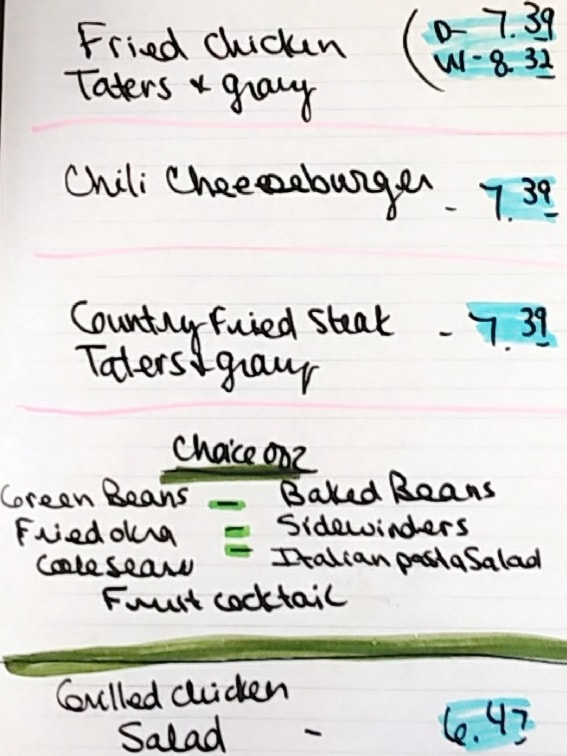 Fried chicken (D- 7.39
Taters & gravy W-8.32
Chili Cheeseburger - 7.39
Country Fried Steak - 7.39
Taters & gravy
Choice on 2
Green Beans - Baked Beans
Fried okra - Sidewinders
Coleslaw - Italian pasta Salad
Fruit cocktail
Grilled chicken
Salad - 6.47